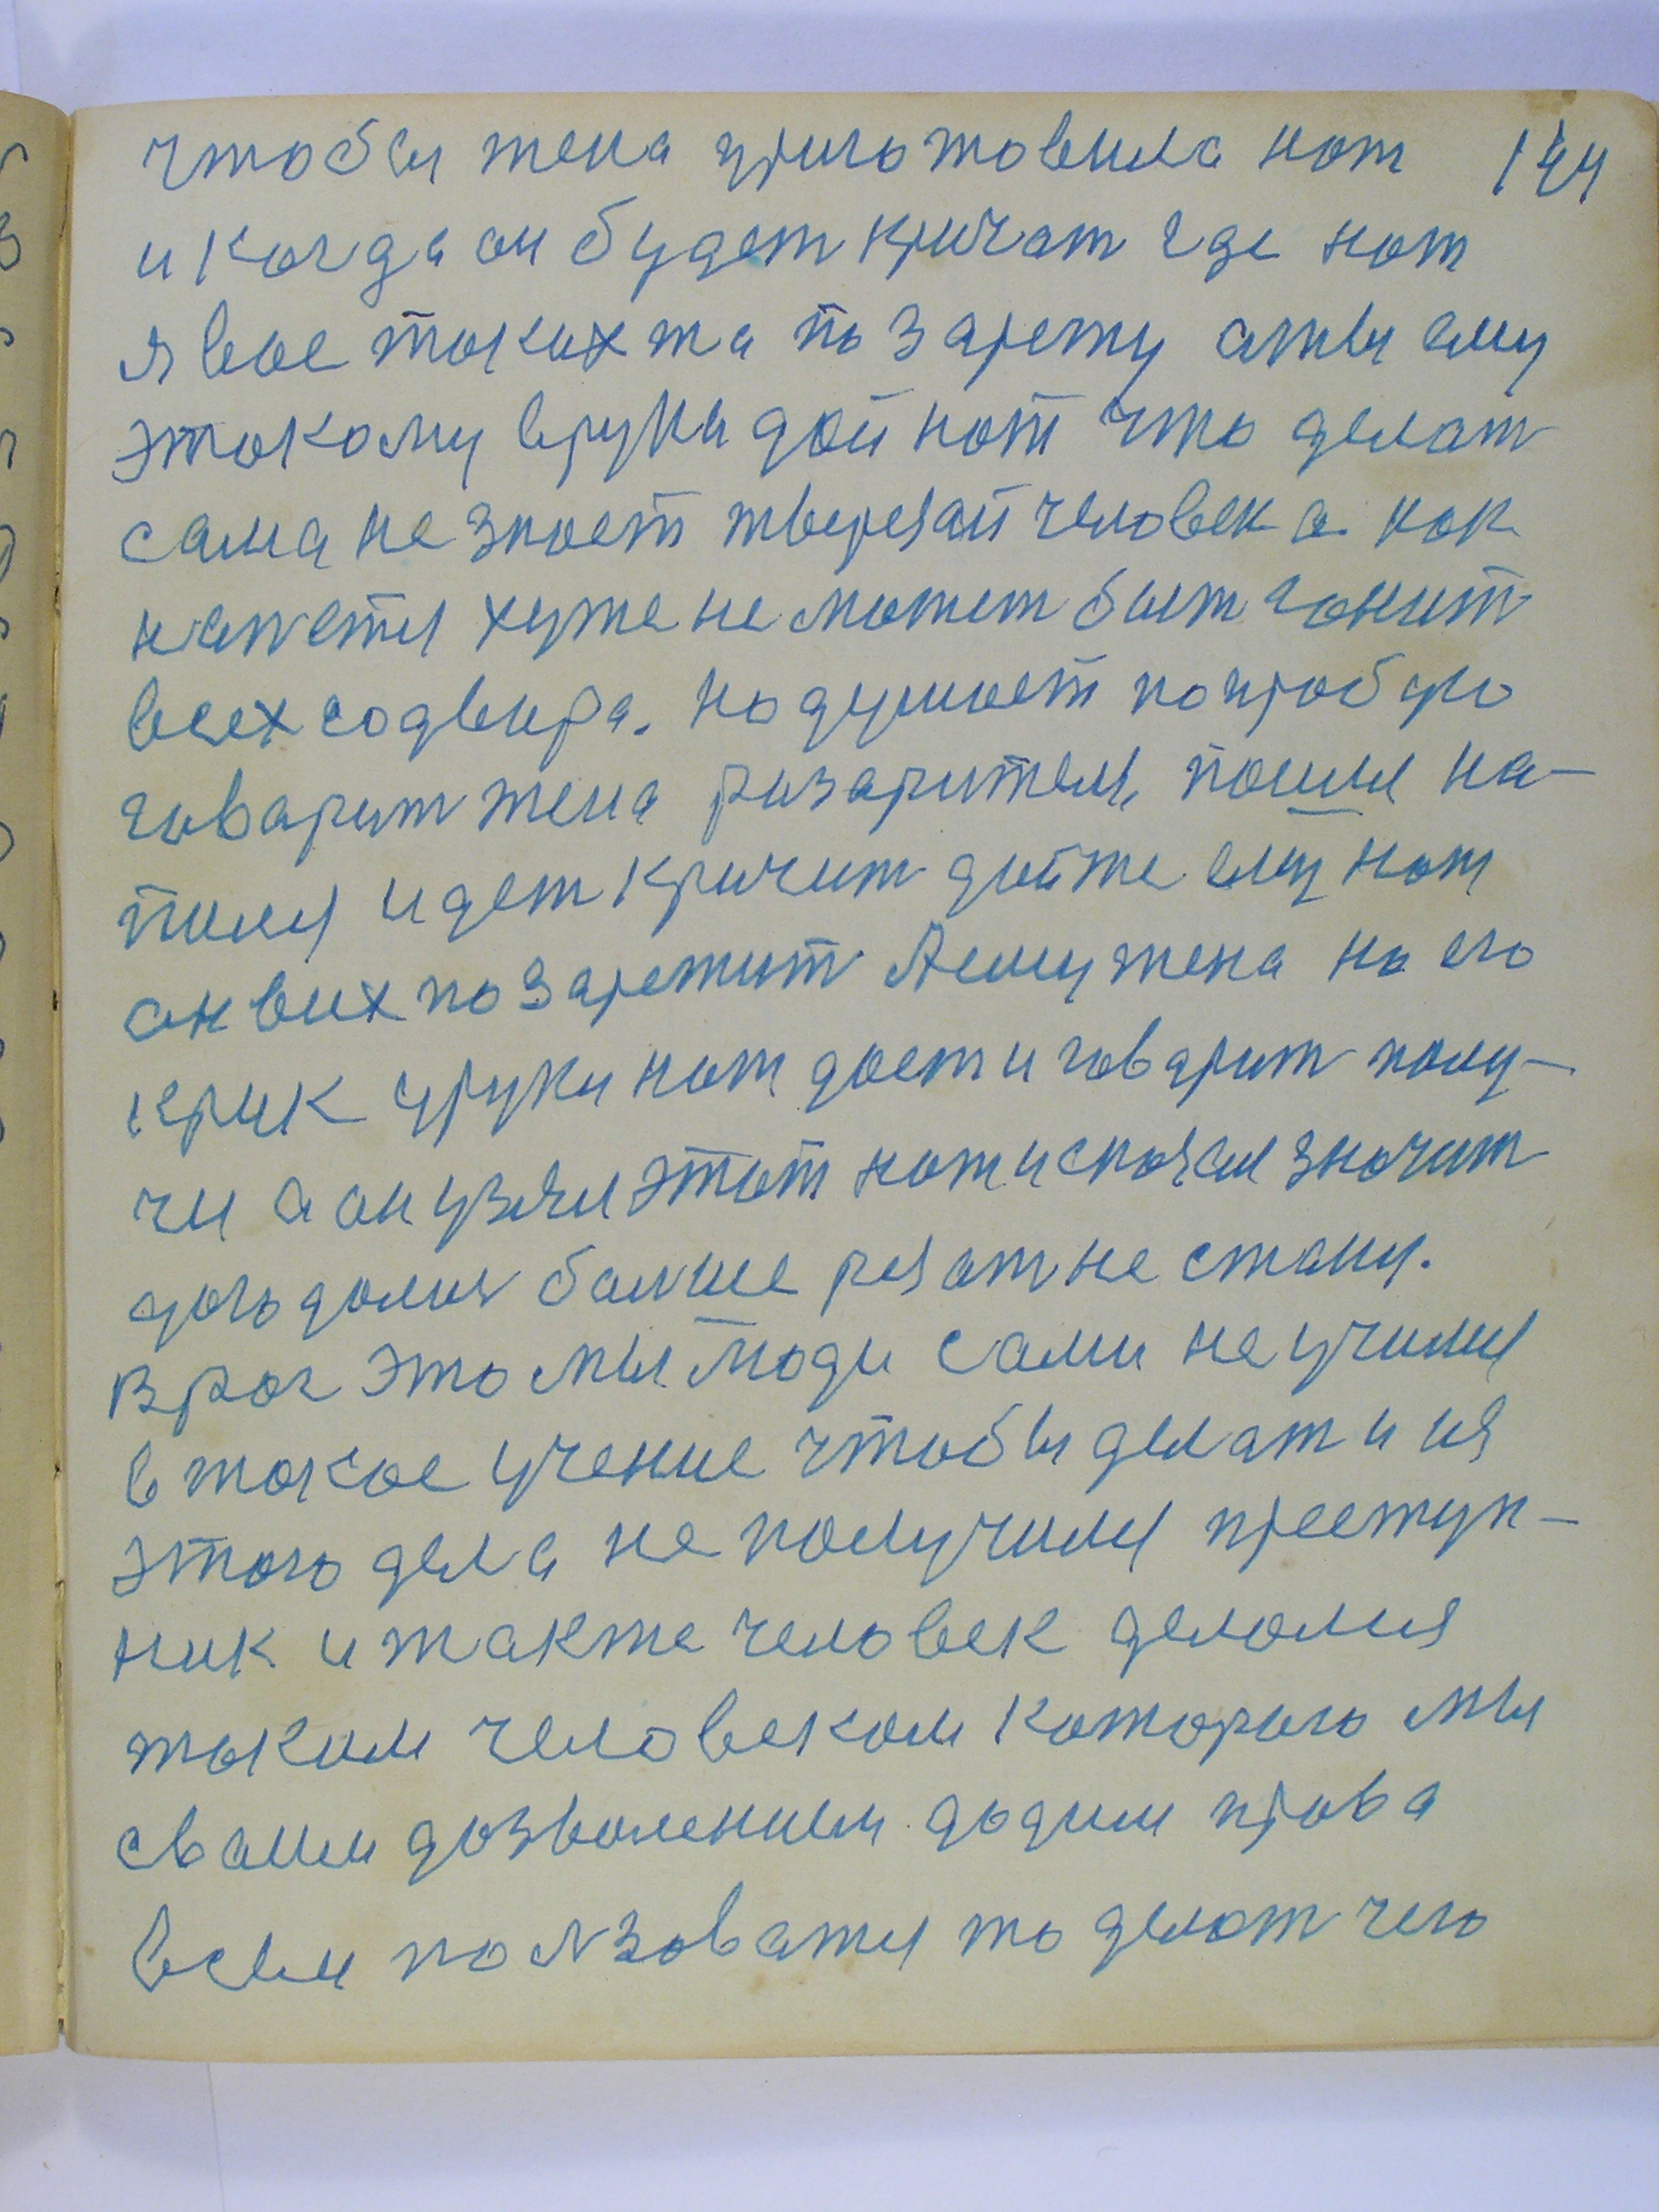 чтобы жена приготовила нож 144
и когда он будет кричат где нож
я вас таких та позарежу аты ему
этокому вруки дай нож что делат
сама не знает тверезай человек а как
напетя хуже не может быт гонит
всех содвира. но думает попробую
говарит жена разарител, пошли на-
пился идет кричит дайте ему нож
он вих позарежит Аему жена на его
крик уруки нож дает и говарит полу-
чи а он узял этот нож и сказал значит
догодался балше резат не стану.
Враг это мы люди сами не училис
в такое учение чтобы делат и из
этого дела не получился преступ-
ник и такте человек делался
таким человеком которого мы
сваим дозволением дадим права
всем ползоватя то делат чего